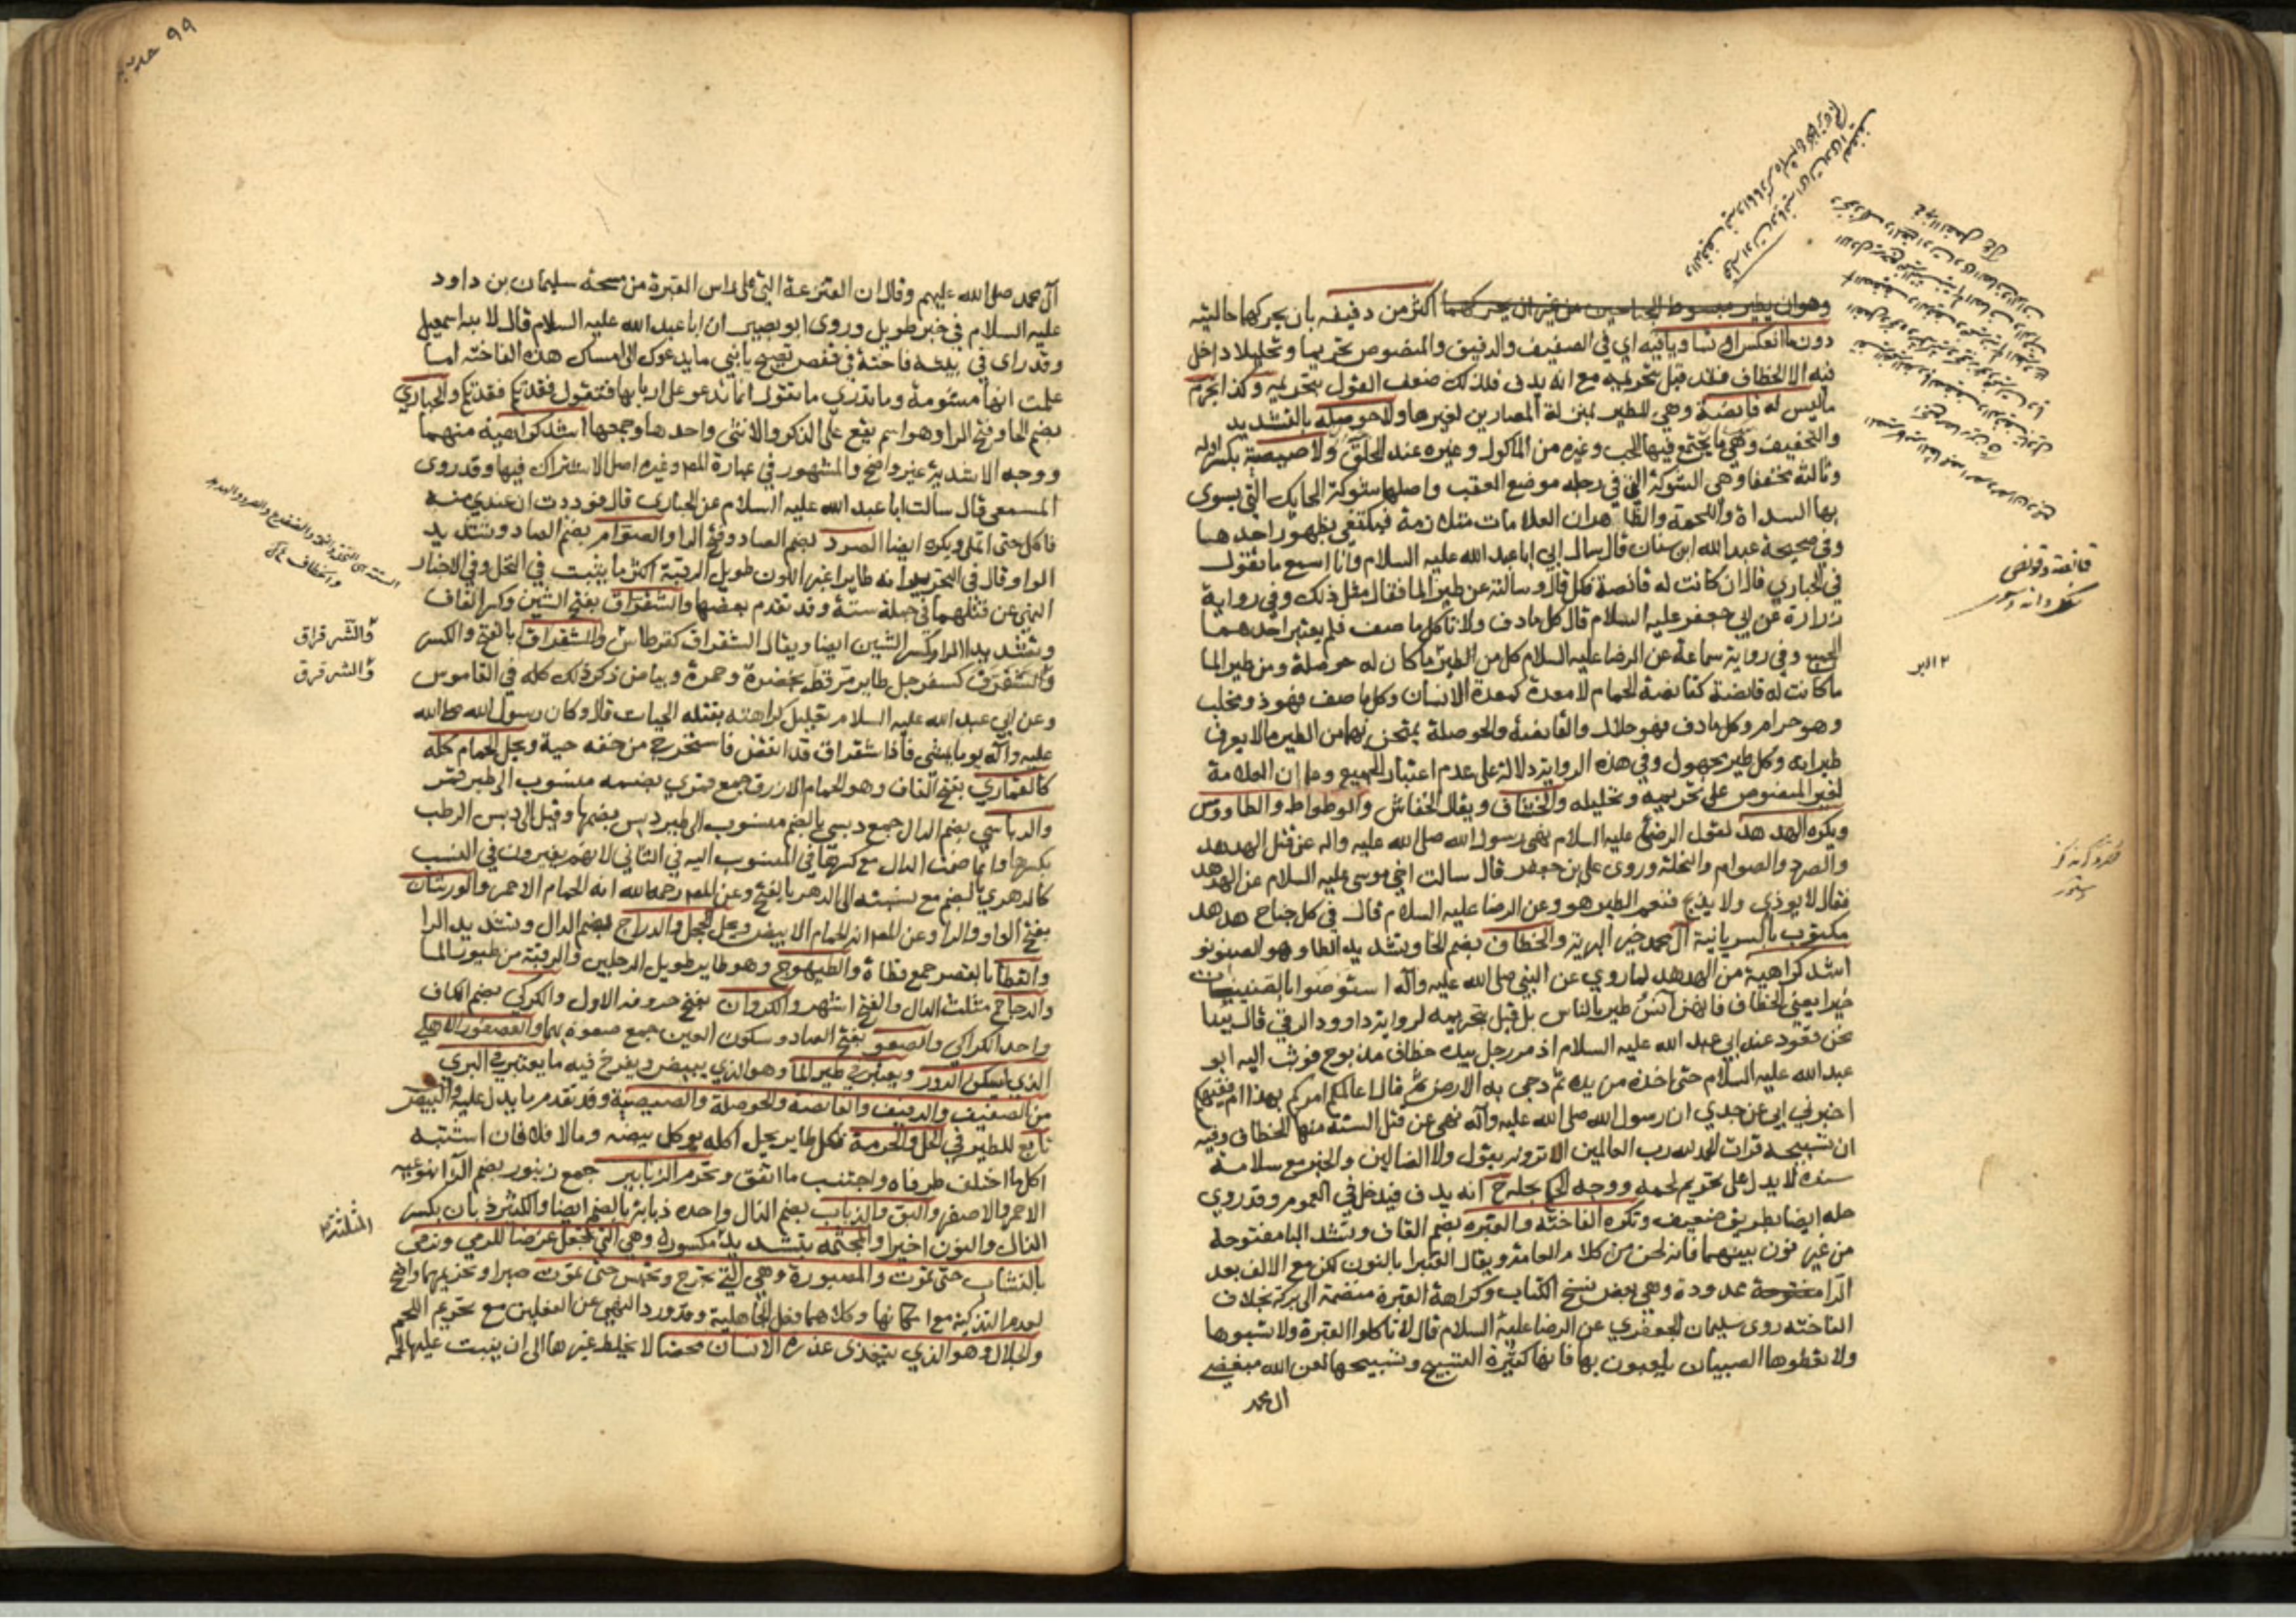 وهو ان يطير مبسوط الجناحين من غير ان يحركهما اكثر من دفيفه بان يحركهما حالتيه
دون ما انعكس او تساويا فيه اي في الصفيف والدفيف والمنصوص تحريما وتحليلا داخل
فيه الا الخطاف فقد قيل بتحريمه مع انه يدف فلذلك ضعف القول بتحريمه وكذا يحرم
ما ليس له قانصة وهي للطير بمنزلة المصارين لغيرها ولا حوصلة بالتشديد
والتخفيف وهي ما يجتمع فيها الحب وغيره من الماكول وغيره عند الحلق ولا صيصية بكسر اوله
وثالثه مخففا وهي الشوكة التي في رجله موضع العقب واصلها شوكة الحايك التي يسوي
بها السداة واللحمة والظاهر ان العلامات متلازمة فيكتفي بظهور احدهما
وفي صحيحة عبد الله ابن سنان قال سال ابي ابا عبد الله عليه السلام وانا اسمع ما تقول
في الحباري قال ان كانت له قانصة فكل قال وسالته عن طير الما فقال مثل ذلك وفي رواية
زرارة عن ابي جعفر عليه السلام قال كل ما دف ولا تاكل ما صف فلم يعتبر احدهما
الجميع وفي رواية سماعة عن الرضا عليه السلام كل من الطير ما كان له حوصلة ومن طير الما
ما كانت له قانصة كقانصة الحمام لا معدة كمعدة الانسان وكل ما صف فهو ذو مخلب
وهو حرام وكل ما دف فهو حلال والقانصة والحوصلة يمتحن بهما من الطير ما لا يعرف
طيرانه وكل طير مجهول وفي هذه الرواية دلالة على عدم اعتبار الجميع وعلى ان العلامة
لغير المنصوص على تحريمه وتحليله والخشاف ويقال الخفاش والوطواط والطاووس
ويكره الهدهد لقول الرضا عليه السلام نهى رسول الله صلى الله عليه واله عن قتل الهدهد
والصرد والصوام والنخلة وروى علي بن جعفر قال سالت اخي موسى عليه السلام عن الهدهد
فقال لا يوذي ولا يذبح فنعم الطير هو وعن الرضا عليه السلام قال في كل جناح هدهد
مكتوب بالسريانية آل محمد خير البرية والخطاف بضم الخا وتشديد الطا وهو الصنونو
اشد كراهية من الهدهد لما روي عن النبي صلى الله عليه وآله استوصوا بالصنينيات
خيرا يعني الخطاف فانهن آنس طير بالناس بل قيل بتحريمه لرواية داوود الرقي قال بينا
نحن قعود عند ابي عبد الله عليه السلام اذ مر رجل بيده خطاف مذبوح فوثب اليه ابو
عبد الله عليه السلام حتى اخذه من يده ثم دحى به الارض ثم قال اعالمكم امركم بهذا ام فقيهكم
اخبرني ابي عن جدي ان رسول الله صلى الله عليه وآله نهى عن قتل الستة منها الخطاف وفيه
ان تسبيحه قراة الحمد لله رب العالمين الا ترونه يقول ولا الضالين والخبر مع سلامة
سنده لا يدل على تحريم لحمه ووجه الحكم بحله ح انه يدف فيدخل في العموم وقد روي
حله ايضا بطريق ضعيف وتكره الفاخته والقبره بضم القاف وتشديد البا مفتوحة
من غير نون بينهما فانه لحن من كلام العامة ويقال القنبرا بالنون لكن مع الالف بعد
الرا مفتوحة ممدودة وهي بعض نسخ الكتاب وكراهة القبرة منضمة الى بركة بخلاف
الفاخته روى سليمان الجعفري عن الرضا عليه السلام قال لا تاكلوا القبرة ولا تسبوها
ولا تعطوها الصبيان يلعبون بها فانها كثيرة التسبيح وتسبيحها لعن الله مبغضي
ال محمد
قانصة وقونصي
٢ البر
٩٩
آل محمد صلى الله عليهم وقال ان القنزعة التي على راس القبرة من مسحة سليمان بن داود
عليه السلام في خبر طويل وروى ابو بصير ان ابا عبد الله عليه السلام قال لابنه اسمعيل
وقد راى في بيته فاختة في قفص تصيح يا بني ما يدعوك الى امساك هذه الفاخته اما
علمت انها مشومة وما تدري ما تقول انها تدعو على اربابها فتقول فقدتكم فقدتكم والحباري
بضم الحا وفتح الرا وهو اسم يقع على الذكر والانثى واحدها وجمعها اشد كراهية منهما
ووجه الاشدية غير واضح والمشهور في عبارة المص وغيره اصل الاشتراك فيها وقد روى
المسمعي قال سالت ابا عبد الله عليه السلام عن الحباري قال فوددت ان عندي منه
فاكل حتى اتملى ويكره ايضا الصرد بضم الصاد وفتح الرا والصوام بضم الصاد وتشديد
الواو وقال في التحرير انه طاير اغبر اللون طويل الرقبة اكثر ما يبيت في النخل وفي الاخبار
النهي عن قتلهما في جملة ستة وقد تقدم بعضها والشقراق بفتح الشين وكسر القاف
وتشديد الرا وكسر الشين ايضا ويقال الشقراق كقرطاس والشقراق بالفتح والكسر
والشقرق كسفرجل طاير مرقط بخضرة وحمرة وبياض ذكر ذلك كله في القاموس
وعن ابي عبد الله عليه السلام تعليل كراهته بقتله الحيات قال وكان رسول الله صلى الله
عليه وآله يوما يمشي فاذا شقراق قد انقض فاستخرج من خفه حية ويحل الحمام كله
كالقماري بفتح القاف وهو الحمام الازرق جمع قمري بضمه منسوب الى طير قمر
والدباسي بضم الدال جمع دبسي بالضم منسوب الى طير دبس بضمها وقيل الى دبس الرطب
بكسرها وانما ضمت الدال مع كسرها في المنسوب اليه في الثاني لانهم يغيرون في النسب
كالدهري بالضم مع نسبته الى الدهر بالفتح وعن المص رحمه الله انه الحمام الاحمر والورشان
بفتح الواو والرا وعن المص انه الحمام الابيض ويحل الحجل والدراج بضم الدال وتشديد الرا
والقطا بالقصر جمع قطاة والطيهوج وهو طاير طويل الرجلين والرقبة من طيور الما
والدجاج مثلث الدال والفتح اشهر والكروان بفتح حروفه الاول والكركي بضم الكاف
واحد الكراكي والصعو بفتح الصاد وسكون العين جمع صعوة بهما والعصفور الاهلي
الذي يسكن الدور ويعتبر في طير الما وهو الذي يبيض ويفرخ فيه ما يعتبر في البري
من الصفيف والدفيف والقانصة والحوصلة والصيصية وقد تقدم ما يدل عليه والبيض
تابع للطير في الحل والحرمة فكل طاير يحل اكله يوكل بيضه وما لا فلا فان اشتبه
اكل ما اختلف طرفاه واجتنب ما اتفق وتحرم الزنابير جمع زنبور بضم الزا بنوعيه
الاحمر والاصفر والبق والذباب بضم الذال واحده ذبابة بالضم ايضا والكثير ذبان بكسر
الذال والنون اخيرا والمجثمه بتشديد الثا مكسورة وهي التي تجعل غرضا للرمي وترمى
بالنشاب حتى تموت والمصبورة وهي التي تجرح وتحبس حتى تموت صبرا وتحريمهما واضح
لعدم التذكية مع امكانها وكلاهما فعل الجاهلية وقد ورد النهي عن الفعلين مع تحريم اللحم
والجلال وهو الذي يتغذى عذرة الانسان محضا لا يخلط غيرها الى ان ينبت عليها لحمه
والشرقراق
والشرقرق